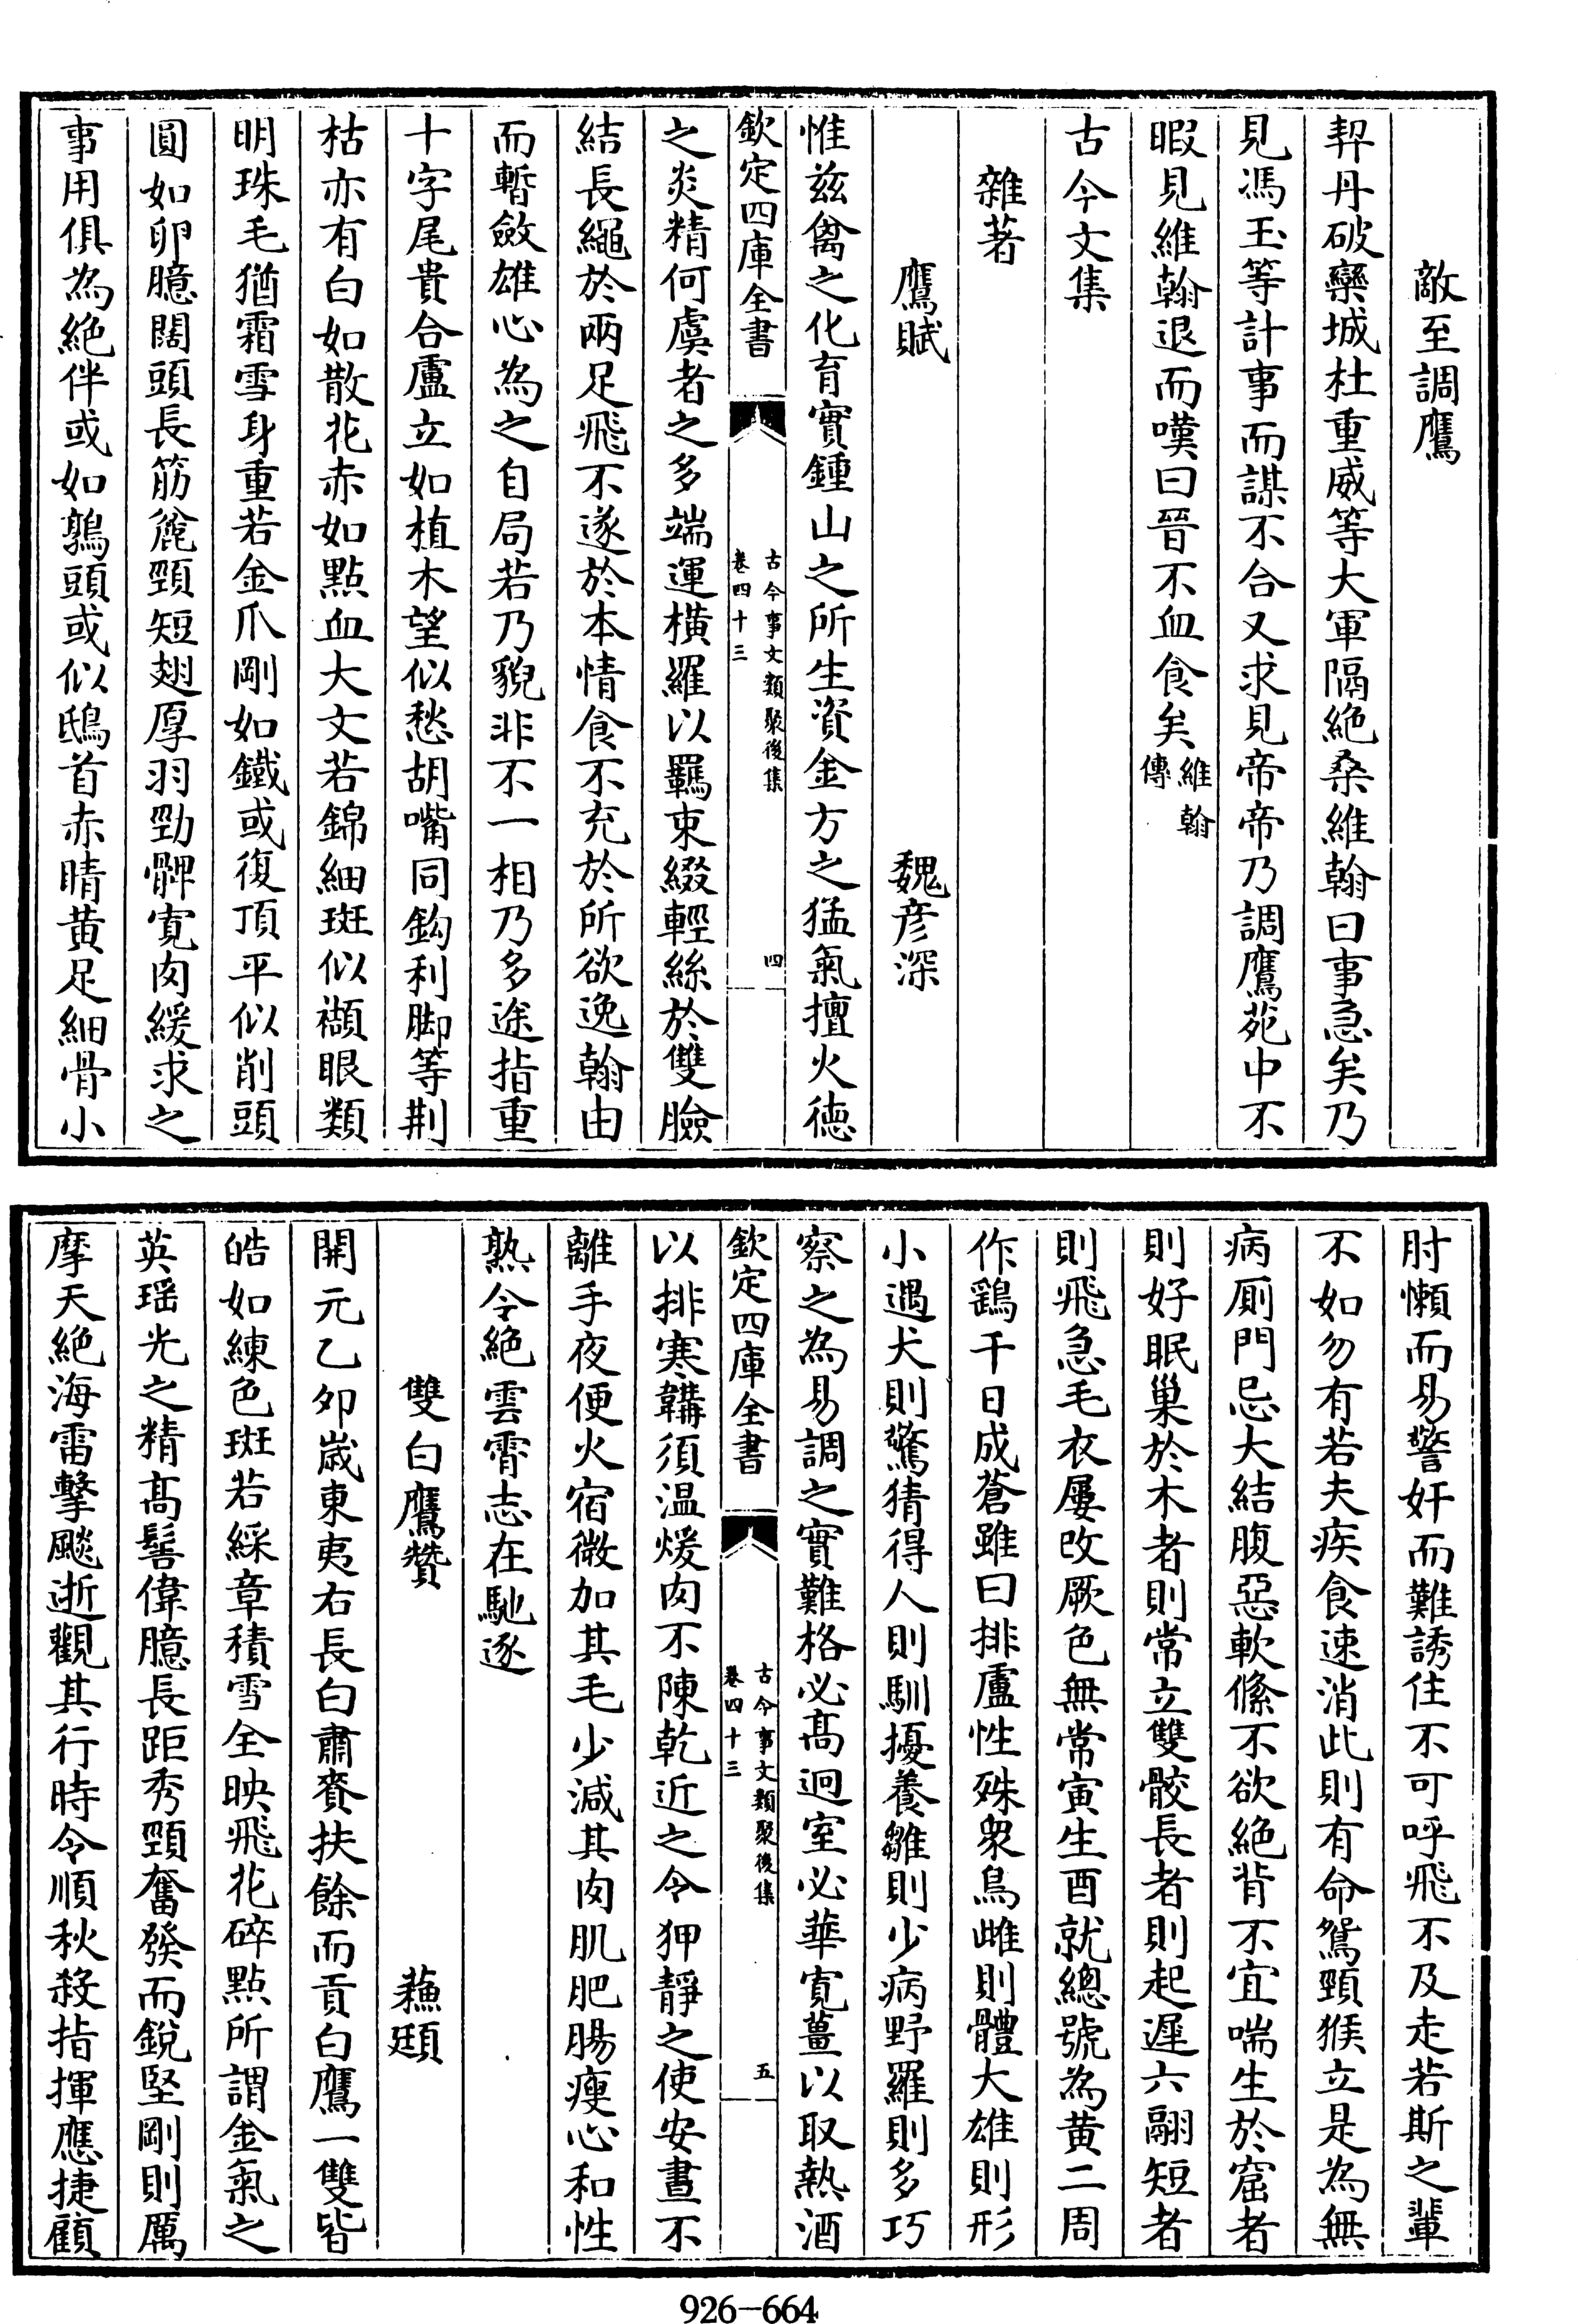 敵至調鷹
契丹破欒城杜重威等大軍隔絶桑維翰曰事急矣乃
見馮玉等計事而謀不合又求見帝帝乃調鷹苑中不
暇見維翰退而嘆曰晉不血食矣維翰傳
古今文集
雜著
鷹賦 魏彦深
惟兹禽之化育實鍾山之所生資金方之猛氣擅火德
欽定四庫全書 古今事文類聚後集 卷四十三 四
之炎精何虞者之多端運横羅以羈束綴輕絲於雙臉
結長繩於兩足飛不遂於本情食不充於所欲逸翰由
而暫斂雄心為之自局若乃貌非不一相乃多途指重
十字尾貴合盧立如植木望似愁胡嘴同鈎利脚等荆
枯亦有白如散花赤如點血大文若錦細斑似纈眼類
明珠毛猶霜雪身重若金爪剛如鐵或復頂平似削頭
圓如卵臆闊頭長筋麄頸短翅厚羽勁髀寛肉緩求之
事用俱為絶伴或如鶉頭或似鴟首赤睛黄足細骨小
肘懶而易警奸而難誘住不可呼飛不及走若斯之輩
不如勿有若夫疾食速消此則有命鴛頸猴立是為無
病厠門忌大結腹惡軟絛不欲絶背不宜喘生於窟者
則好眠巢於木者則常立雙骹長者則起遲六翮短者
則飛急毛衣屢改厥色無常寅生酉就總號為黄二周
作鷂千日成蒼雖曰排盧性殊衆鳥雌則體大雄則形
小遇犬則驚猜得人則馴擾養雛則少病野羅則多巧
察之為易調之實難格必髙迥室必華寛薑以取熱酒
欽定四庫全書 古今事文類聚後集 卷四十三 五
以排寒韝須温煖肉不陳乾近之令狎靜之使安晝不
離手夜便火宿微加其毛少減其肉肌肥腸瘦心和性
熟令絶雲霄志在馳逐
雙白鷹贊 蘓頲
開元乙夘嵗東夷右長白肅賚扶餘而貢白鷹一雙皆
皓如練色斑若綵章積雪全映飛花碎點所謂金氣之
英瑶光之精髙髻偉臆長距秀頸奮發而鋭堅剛則厲
摩天絶海雷擊飈逝觀其行時令順秋殺指揮應捷顧
926-664